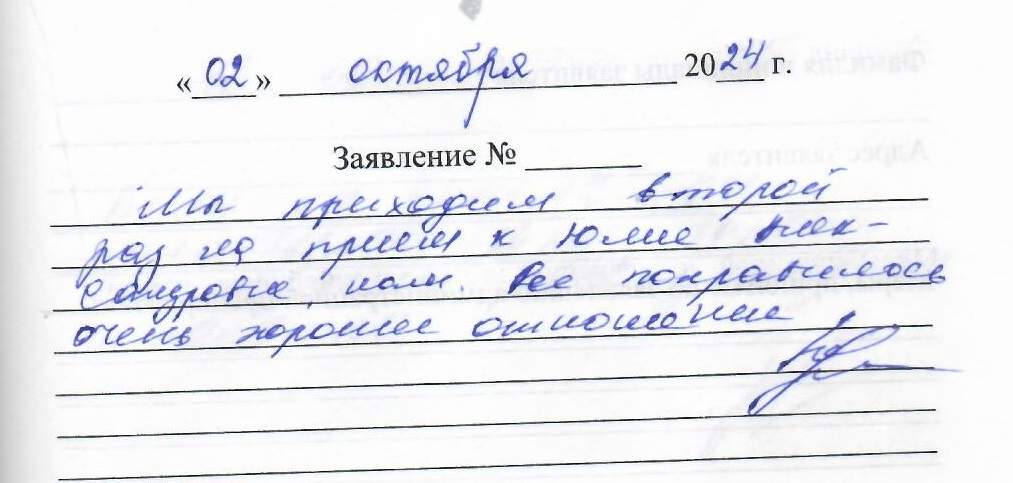 «02» октября 2024 г.
Заявление №
Мы приходим второй
раз на прием к Юлие Алек-
сандровне, нам все понравилось
очень хорошее отношение